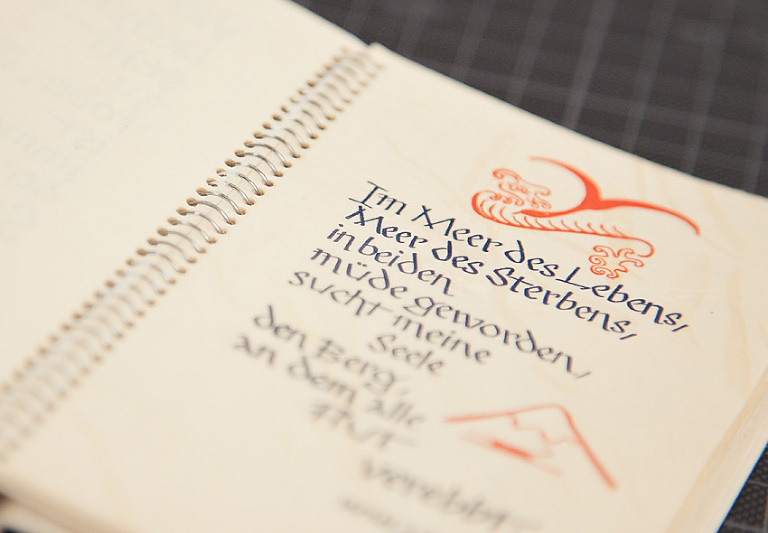 Im Meer des Lebens,
Meer des Sterbens,
in beiden
müde geworden,
sucht meine
Seele
den Berg,
an dem alle
Flut
verebbt